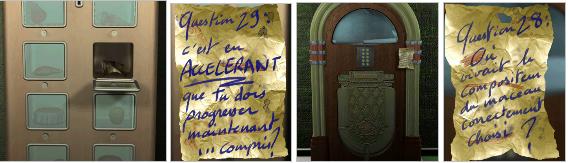 Question 29:
c'est en
ACCELERANT
que tu dois
progresser
maintenant
... compris?
Question 28:
Où
vivait le
compositeur
du morceau
correctement
choisi ?